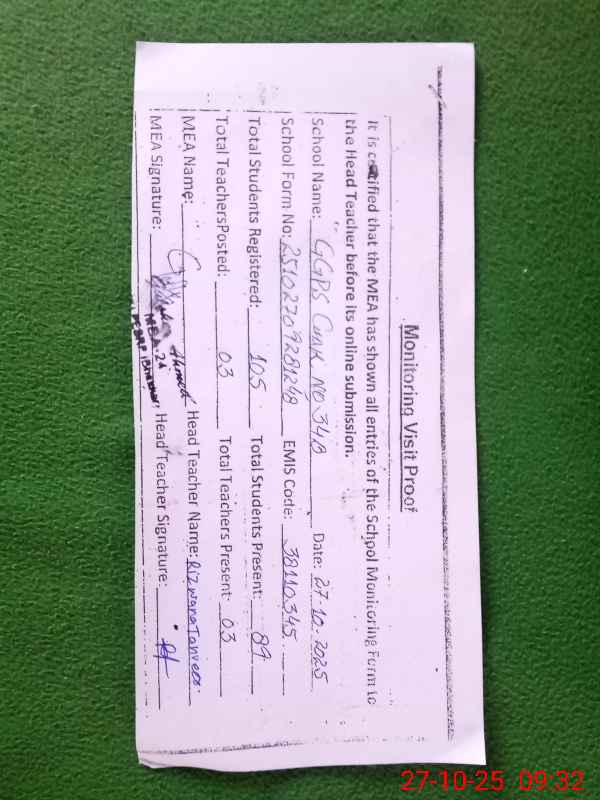 Monitoring Visit Proof
It is certified that the MEA has shown all entries of the School Monitoring Form to
the Head Teacher before its online submission.
School Name: GGPS Chak No 34B Date: 27-10-2025
School Form No: 25102709281248 EMIS Code: 38110345
Total Students Registered: 105 Total Students Present: 89
Total TeachersPosted: 03 Total Teachers Present: 03
MEA Name: Ahmed Head Teacher Name: Rizwana Tanveer
MEA Signature: Head Teacher Signature:
MEA-24
27-10-25 09:32